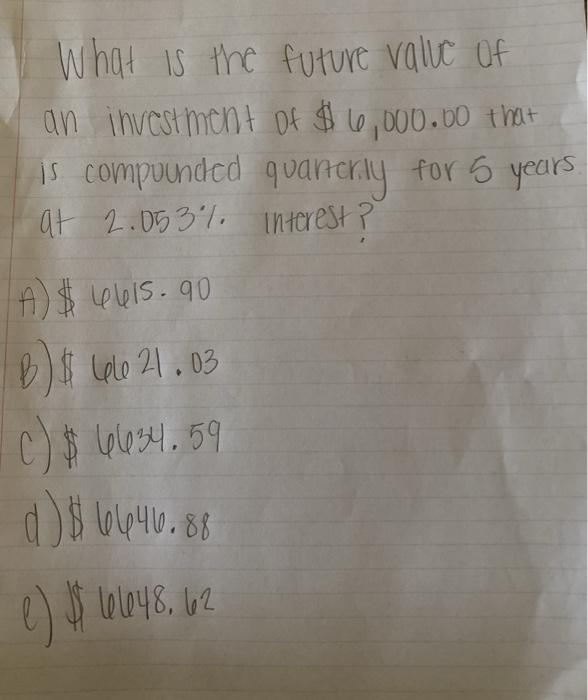 What is the future value of
an investment of $6,000.00 that
is compounded quarterly for 5 years
at 2.053% interest?
A) $ 6615.90
B) $ 6621.03
C) $ 6634.59
d) $ 6646.88
e) $ 6648.62